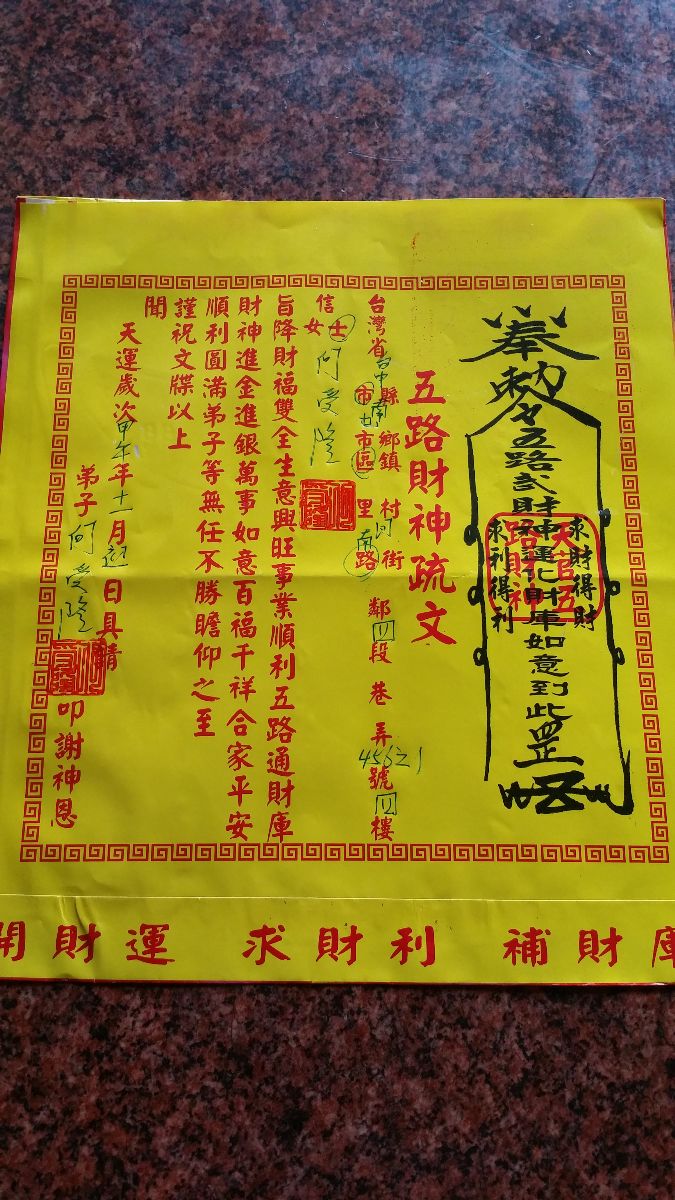 奉勅令五路武財神運化財庫如意到此罡
求財得財
求利得利
天官五
路財神
五路財神疏文
台灣省台中縣市南鄉鎮市區村里街路鄰四段巷弄456之1號四樓
信士女何受隆
旨降財福雙全生意興旺事業順利五路通財庫
財神進金進銀萬事如意百福千祥合家平安
順利圓滿弟子等無任不勝瞻仰之至
謹祝文牒以上
聞
天運歲次甲午年十一月初日具情
弟子何受隆叩謝神恩
開財運 求財利 補財庫